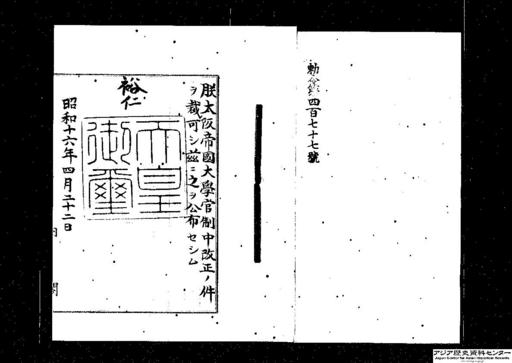 勅令第四百七十七號
朕大阪帝國大學官制中改正ノ件
ヲ裁可シ茲ニ之ヲ公布セシム
裕仁
天皇
御璽
昭和十六年四月二十二日
アジア歴史資料センター
Japan Center for Asian Historical Records